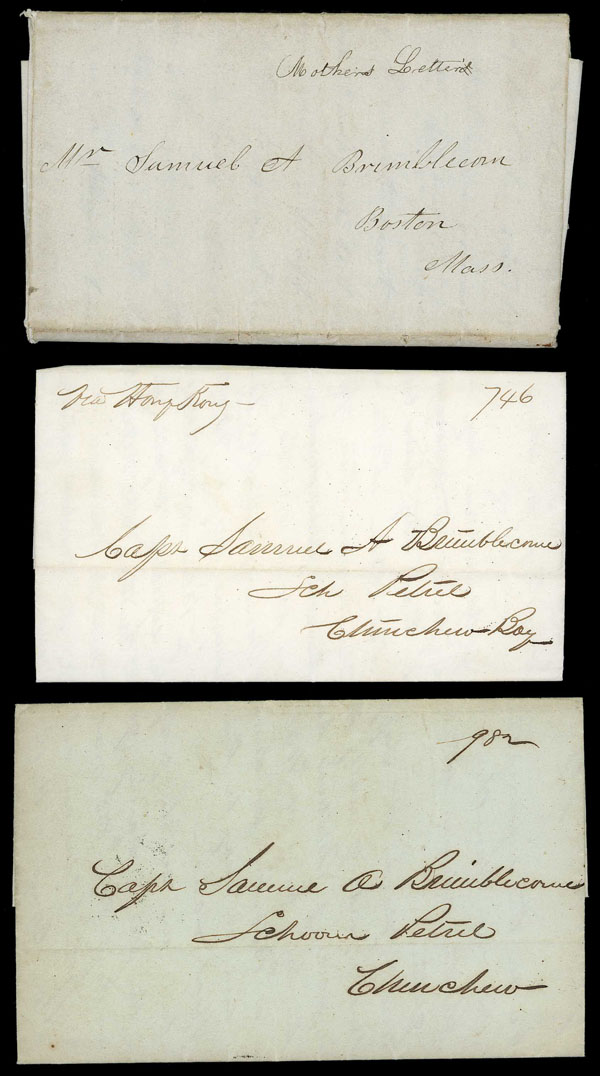 Mothers Letters
Mr Samuel A Brimblecom
Boston
Mass.
Via Hong Kong —
746
Capt Samuel A Brimblecome
Sch Petrel
Chinchew Bay
982
Capt Samue A Brimblecome
Schoon Petrel
Chinchew